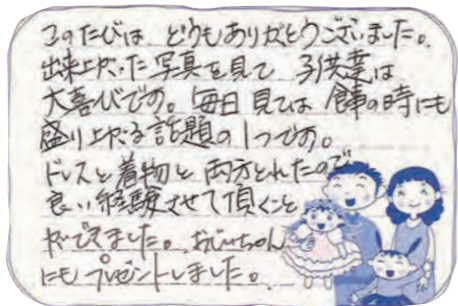 このたびは どうもありがとうございました。
出来上がった写真を見て 子供達は
大喜びです。毎日見ては 食事の時にも
盛り上がる話題の1つです。
ドレスと着物と両方とれたので
良い経験させて頂くこと
ができました。おじいちゃん
にもプレゼントしました。